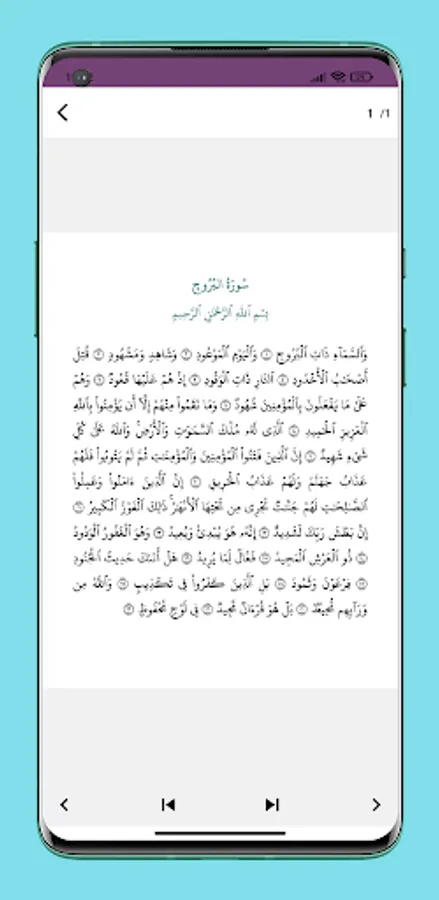 1 /1
سُورَةُ البُرُوجِ
بِسْمِ ٱللَّهِ ٱلرَّحْمَٰنِ ٱلرَّحِيمِ
وَٱلسَّمَآءِ ذَاتِ ٱلْبُرُوجِ ١ وَٱلْيَوْمِ ٱلْمَوْعُودِ ٢ وَشَاهِدٍ وَمَشْهُودٍ ٣ قُتِلَ
أَصْحَٰبُ ٱلْأُخْدُودِ ٤ ٱلنَّارِ ذَاتِ ٱلْوَقُودِ ٥ إِذْ هُمْ عَلَيْهَا قُعُودٌ ٦ وَهُمْ
عَلَىٰ مَا يَفْعَلُونَ بِٱلْمُؤْمِنِينَ شُهُودٌ ٧ وَمَا نَقَمُوا۟ مِنْهُمْ إِلَّآ أَن يُؤْمِنُوا۟ بِٱللَّهِ
ٱلْعَزِيزِ ٱلْحَمِيدِ ٨ ٱلَّذِى لَهُۥ مُلْكُ ٱلسَّمَٰوَٰتِ وَٱلْأَرْضِ ۚ وَٱللَّهُ عَلَىٰ كُلِّ
شَىْءٍ شَهِيدٌ ٩ إِنَّ ٱلَّذِينَ فَتَنُوا۟ ٱلْمُؤْمِنِينَ وَٱلْمُؤْمِنَٰتِ ثُمَّ لَمْ يَتُوبُوا۟ فَلَهُمْ
عَذَابُ جَهَنَّمَ وَلَهُمْ عَذَابُ ٱلْحَرِيقِ ١٠ إِنَّ ٱلَّذِينَ ءَامَنُوا۟ وَعَمِلُوا۟
ٱلصَّٰلِحَٰتِ لَهُمْ جَنَّٰتٌ تَجْرِى مِن تَحْتِهَا ٱلْأَنْهَٰرُ ۚ ذَٰلِكَ ٱلْفَوْزُ ٱلْكَبِيرُ ١١
إِنَّ بَطْشَ رَبِّكَ لَشَدِيدٌ ١٢ إِنَّهُۥ هُوَ يُبْدِئُ وَيُعِيدُ ١٣ وَهُوَ ٱلْغَفُورُ ٱلْوَدُودُ
١٤ ذُو ٱلْعَرْشِ ٱلْمَجِيدُ ١٥ فَعَّالٌ لِّمَا يُرِيدُ ١٦ هَلْ أَتَىٰكَ حَدِيثُ ٱلْجُنُودِ
١٧ فِرْعَوْنَ وَثَمُودَ ١٨ بَلِ ٱلَّذِينَ كَفَرُوا۟ فِى تَكْذِيبٍ ١٩ وَٱللَّهُ مِن
وَرَآئِهِم مُّحِيطٌۢ ٢٠ بَلْ هُوَ قُرْءَانٌ مَّجِيدٌ ٢١ فِى لَوْحٍ مَّحْفُوظٍۭ ٢٢